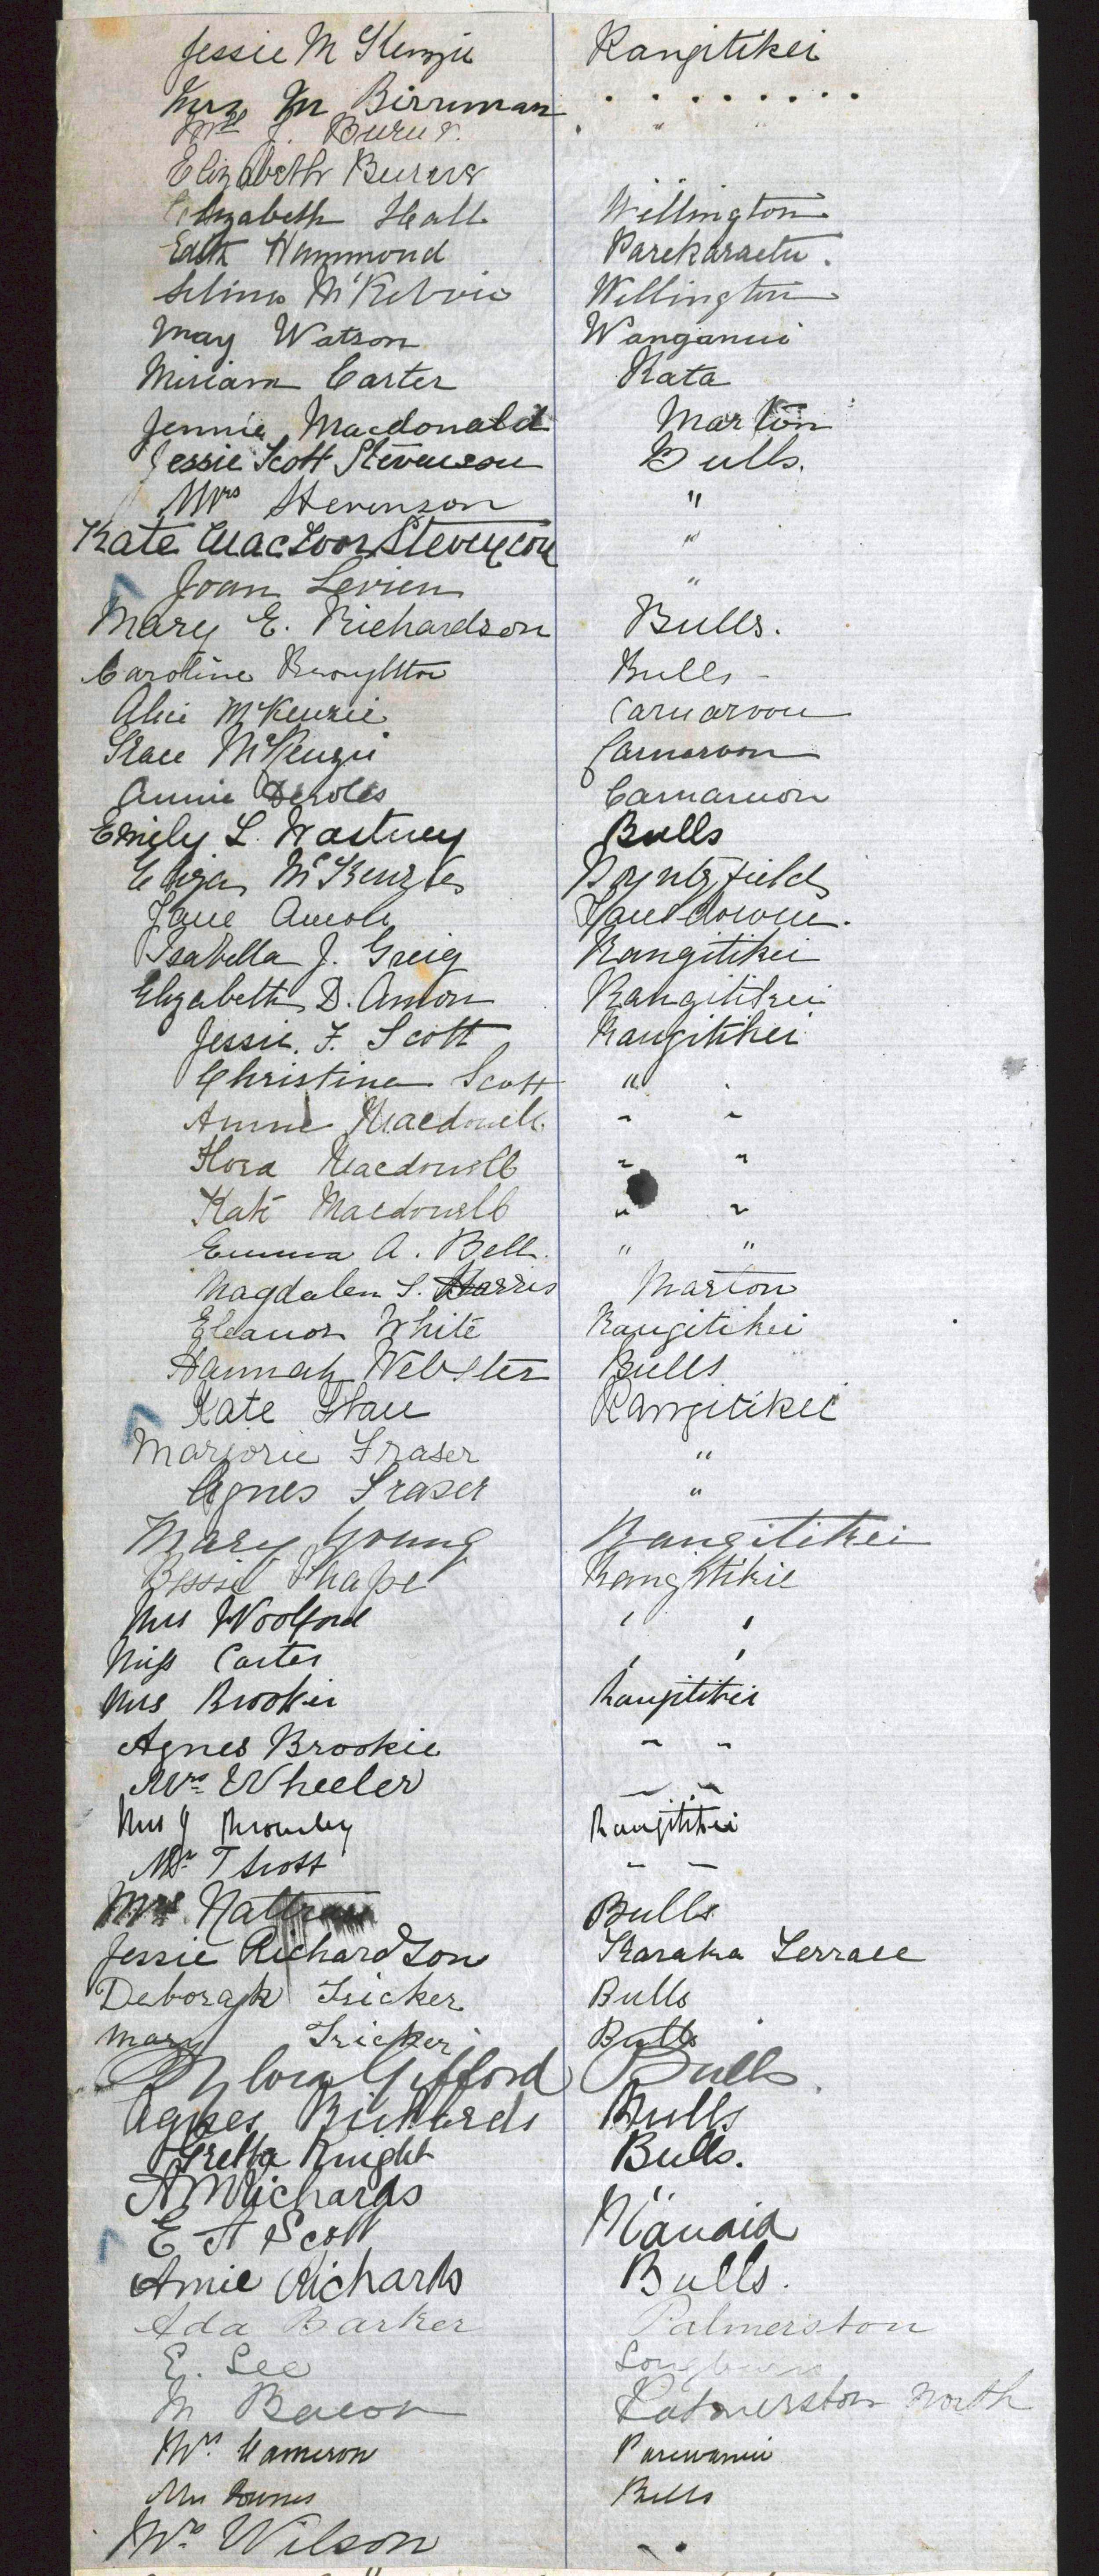 Jessie McKenzie Rangitikei
Mrs M Birriman . . . . . . . .
J. " "
Elizabeth
Elizabeth Hall Willington
Edith Hammond Parekaraetu.
Selina McKelvie Wellington
May Watson Wanganui
Miriam Carter Rata
Jennie Macdonald Marton
Jessie Scott Stevenson Bulls.
Mrs Stevenson "
Kate MacIvor Stevenson "
Joan Levien "
Mary E. Richardson Bulls.
Caroline Broughton Bulls -
Alice McKenzie Carnarvon
Grace McKenzie Carnarvon
Annie Carnarvon
Emily L. Wastney Bulls
Eliza McKenzie Pyntzfield
Jane Amon
Isabella J. Greig Rangitikei
Elizabeth D. Amon Rangitikei
Jessie. F. Scott Rangitikei
Christina Scott "
Annie Macdonell " "
Flora Macdonell " "
Kate Macdonell " "
Emma A. Bell. " "
Magdalen S. Harris Marton
Eleanor White Rangitikei
Hannah Webster Bulls
Kate Rangitikei
Marjorie Fraser "
Agnes Fraser "
Mary Young Rangitikei
Bessie Rangitikie
Mrs Woolford " "
Miss Carter " "
Mrs Brookie Rangitikei
Agnes Brookie " "
Mrs Wheeler " "
Mrs J Bromley Rangitikei
Mrs T Scott " "
Mrs Bulls
Jessie Richardson Karaka Terrace
Deborah Tricker Bulls
Mary Tricker Bulls
Sylvia Gifford Bulls.
Agnes Richards Bulls
Gretta Knight Bulls.
A M Richards "
E A Scott Manaia
Amie Richards Bulls.
Ada Barker Palmerston
E. Lee Longburn
M Bacon Palmerston North
Mrs Cameron Parewanui
Mrs Bulls
Mrs Wilson "